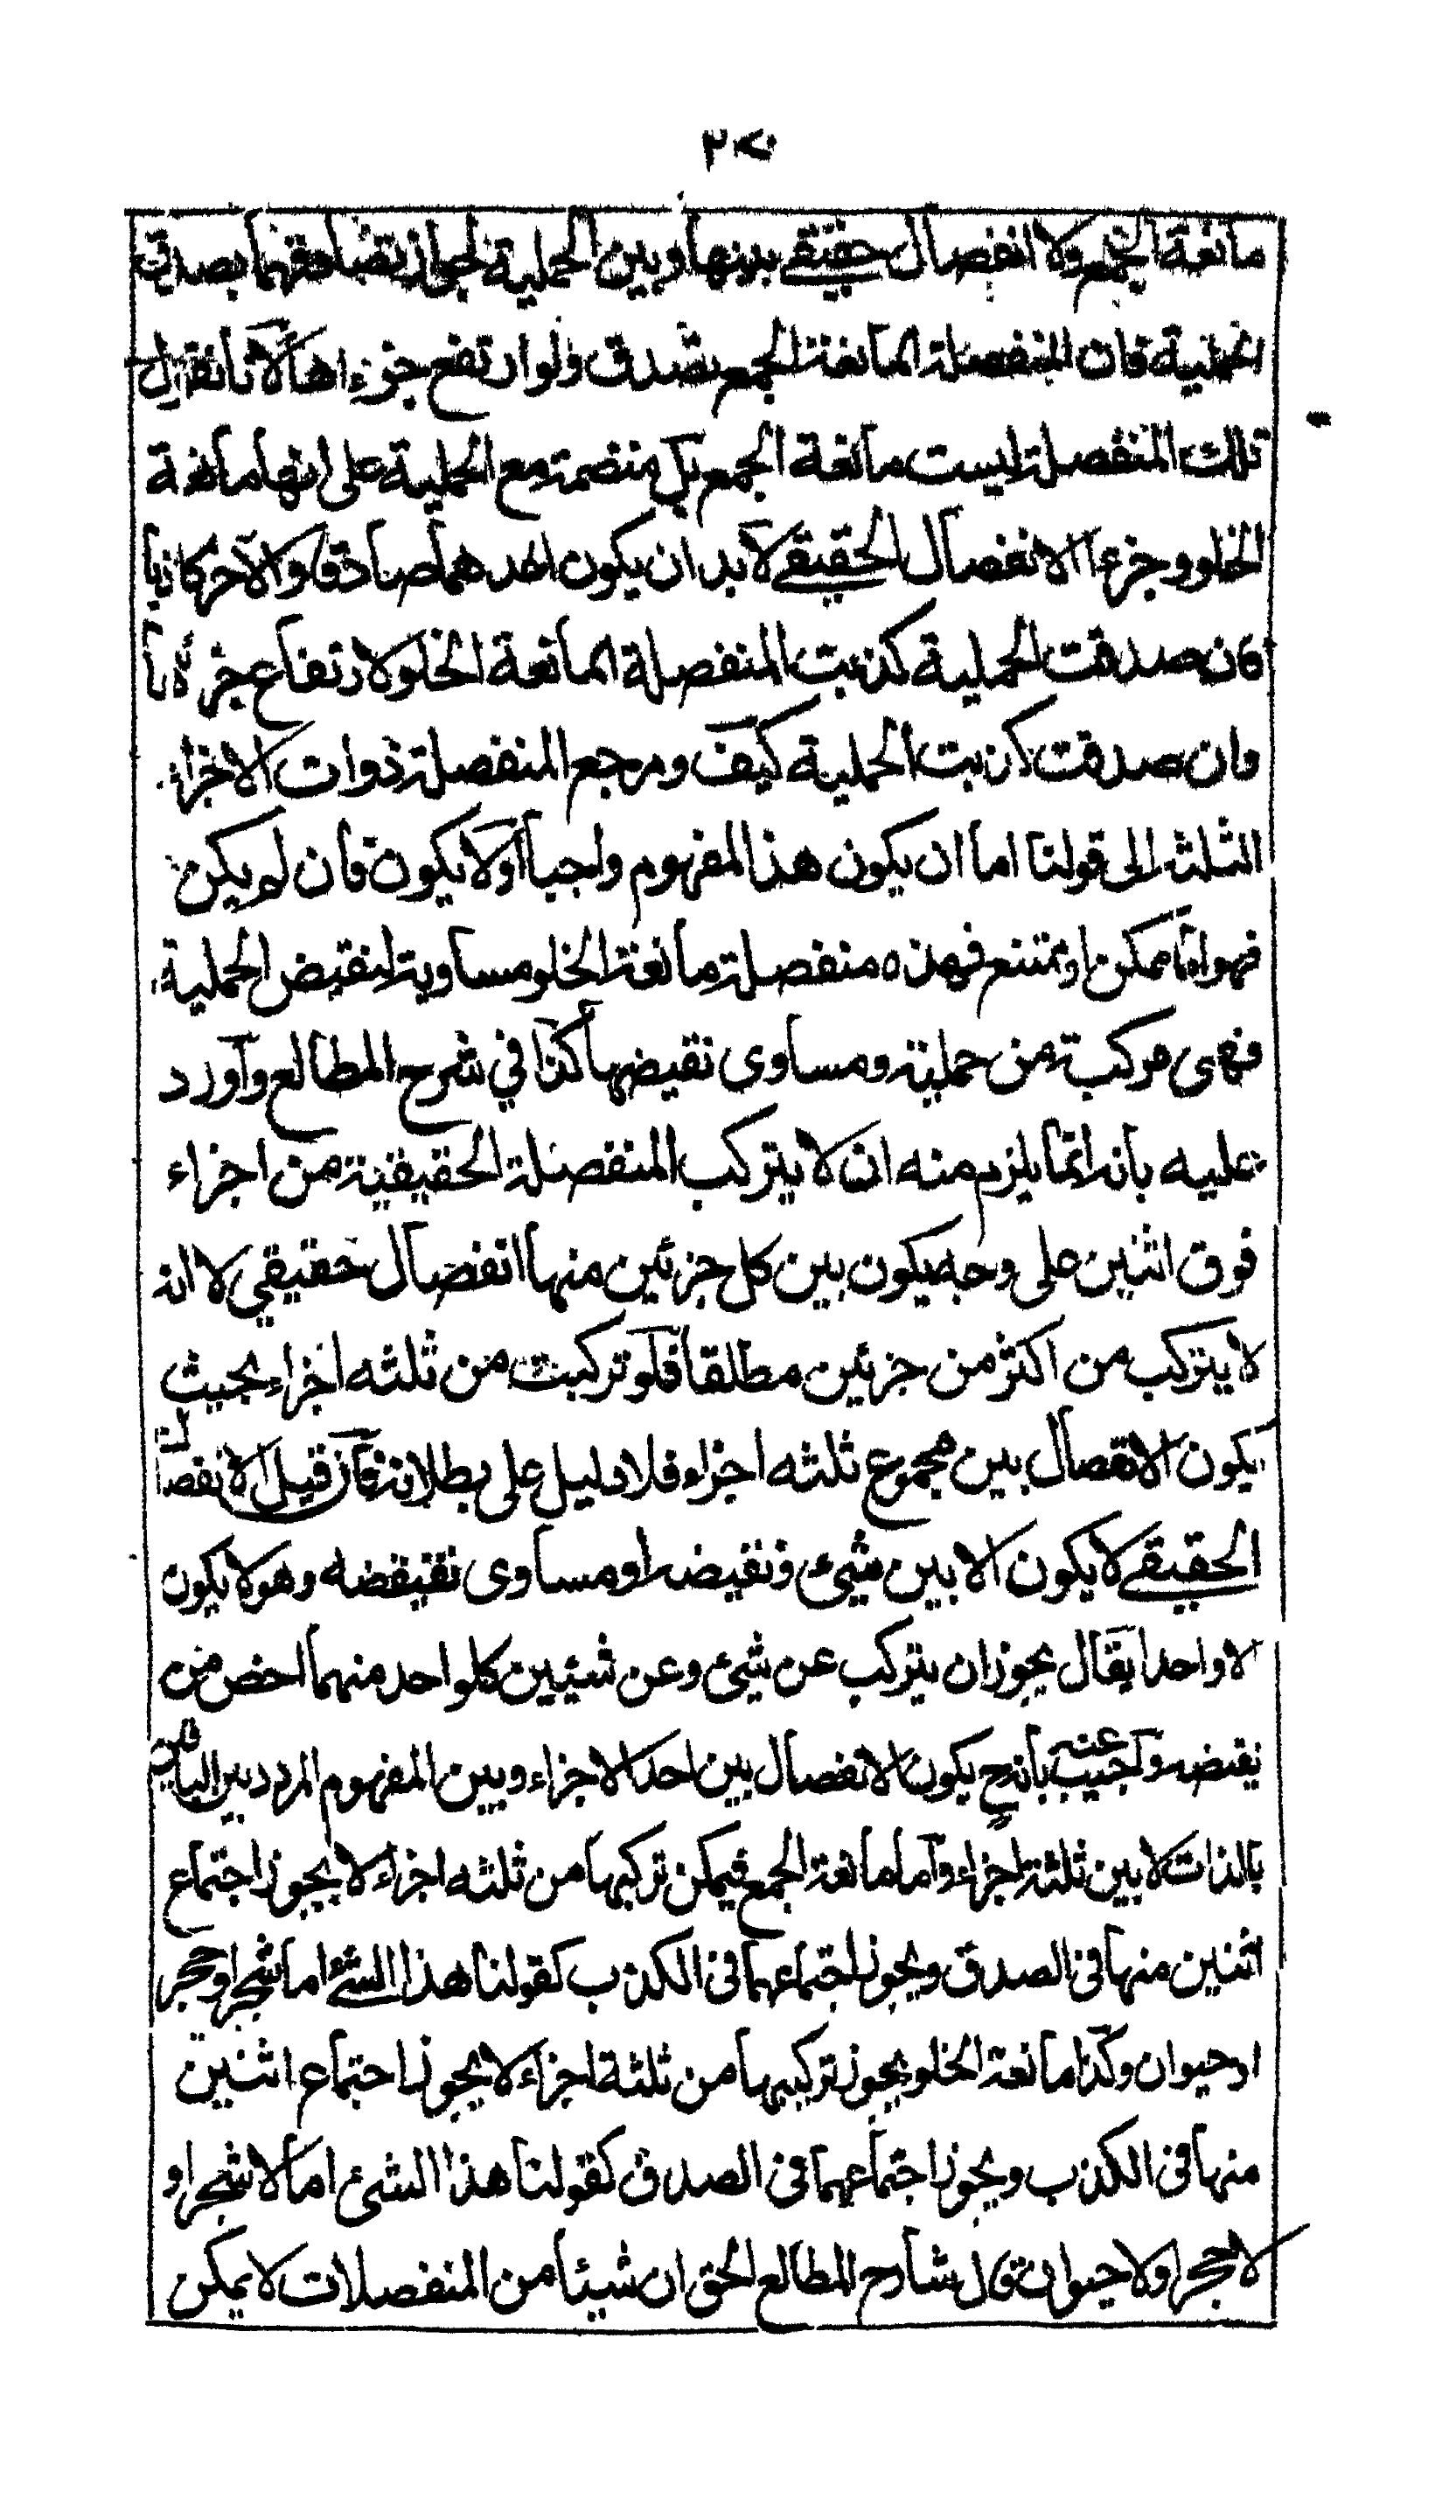 ٢٧٠
مانعة الجمع ولا انفصال حقيقي بينها وبين الحملية لجواز تصادقهما بصدق
الحملية فان المنفصلة المانعة الجمع تصدق ولو ارتفع جزءاها لا ثا نقول
تلك المنفصلة ليست مانعة الجمع بل منضمة مع الحملية على انها مانعة
الخلو وجزءا الانفصال الحقيقي لابد ان يكون احدهما صادقا والآخر كاذبا
فان صدقت الحملية كذبت المنفصلة المانعة الخلو لارتفاع جزئيها
وان صدقت كذبت الحملية كيف ومرجع المنفصلة ذوات الاجزاء
الثلثة الى قولنا اما ان يكون هذا المفهوم واجبا أولا يكون فان لم يكن
فهو اما ممكن او ممتنع فهذه منفصلة مانعة الخلو مساوية لنقيض الحملية
فهى مركبة من حملية ومساوى نقيضها كذا في شرح المطالع وآورد
عليه بانه انما يلزم منه ان لا يتركب المنفصلة الحقيقية من اجزاء
فوق اثنين على وجه يكون بين كل جزئين منها انفصال حقيقي لا انه
لا يتركب من اكثر من جزئين مطلقا فلو تركبت من ثلثه اجزاء بحيث
يكون الانفصال بين مجموع ثلثه اجزاء فلا دليل على بطلانه فان قيل الانفصال
الحقيقي لا يكون الا بين شيئ ونقيضه او مساوى نقيضه وهو لا يكون
الا واحدا يقال يجوز ان يتركب عن شيئ وعن شيئين كل واحد منهما اخص من
نقيضه وآجيب عنه بانه ح يكون الانفصال بين احد الاجزاء وبين المفهوم المردد بين الباقيين
بالذات لا بين ثلثة اجزاء وآما مانعة الجمع فيمكن تركيبها من ثلثه اجزاء لا يجوز اجتماع
اثنين منها فى الصدق ويجوز اجتماعهما فى الكذب كقولنا هذا الشئ اما شجر او حجر
او حيوان وكذا مانعة الخلو يجوز تركيبها من ثلثة اجزاء لا يجوز اجتماع اثنين
منها فى الكذب ويجوز اجتماعهما فى الصدق كقولنا هذا الشئ اما لا شجر او
لا حجر او لا حيوان قال شارح المطالع الحق ان شيئا من المنفصلات لا يمكن